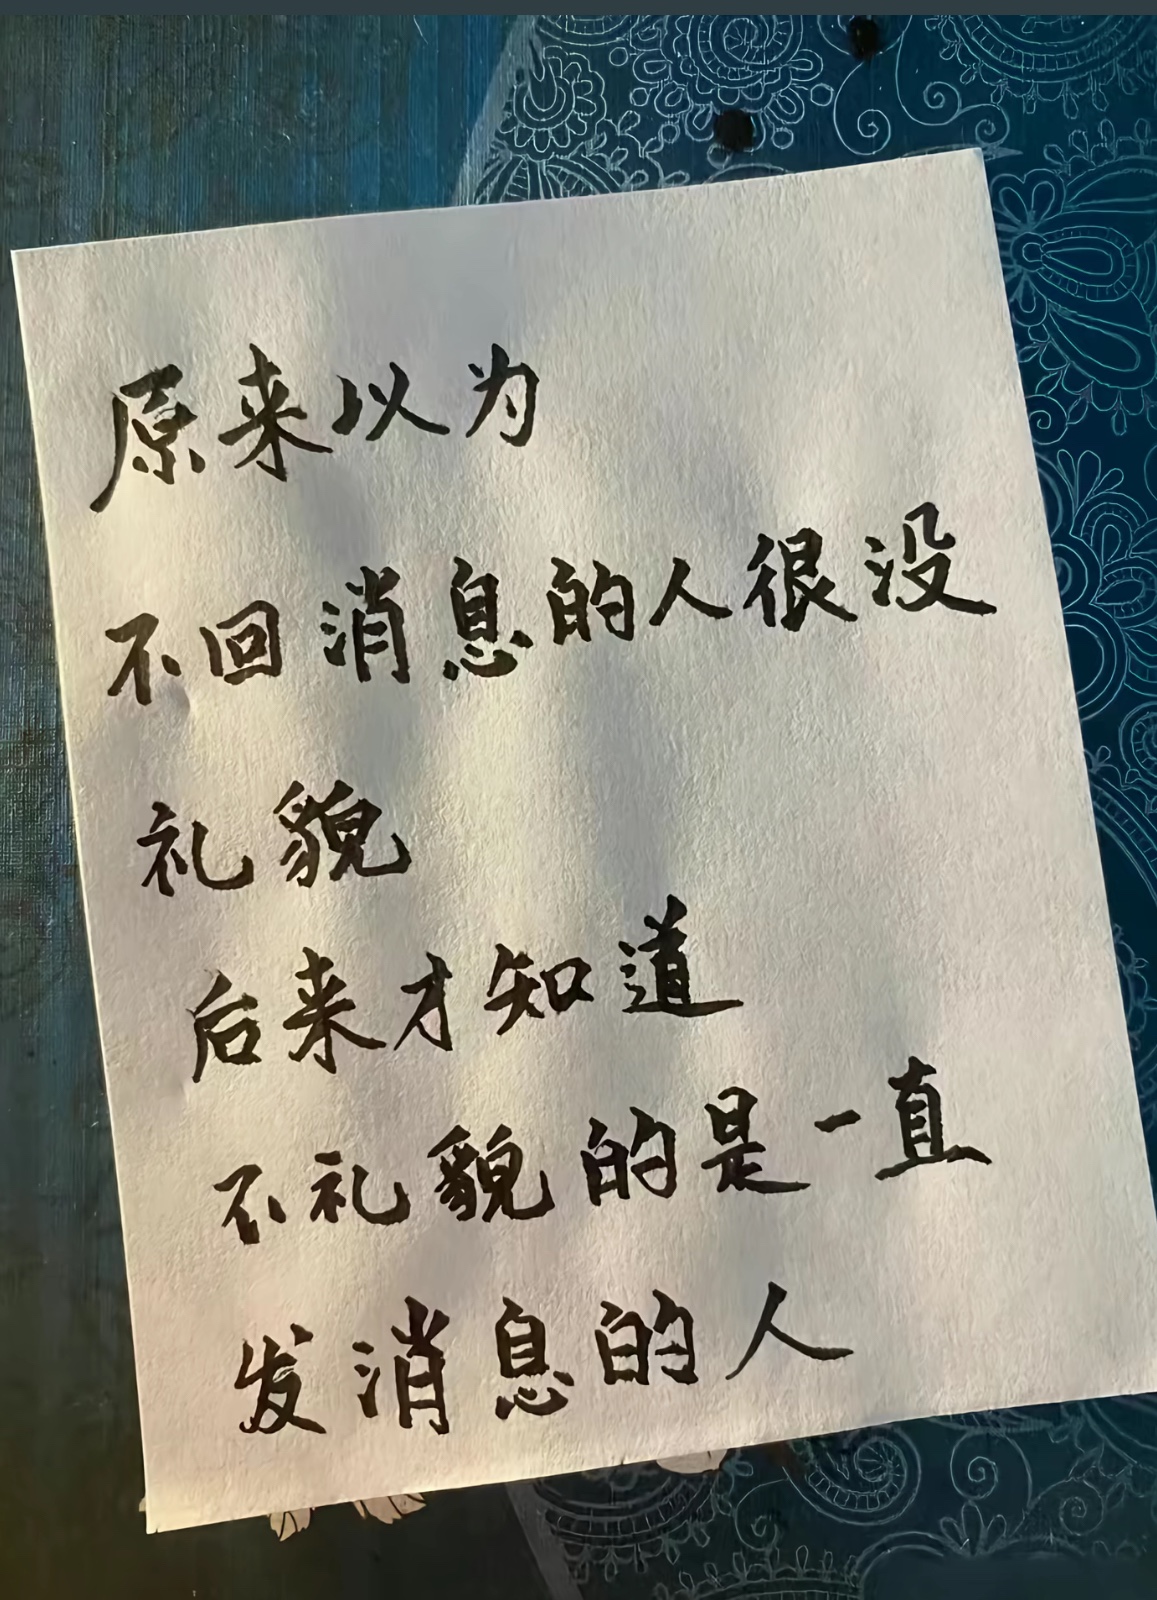 原来以为
不回消息的人很没
礼貌
后来才知道
不礼貌的是一直
发消息的人